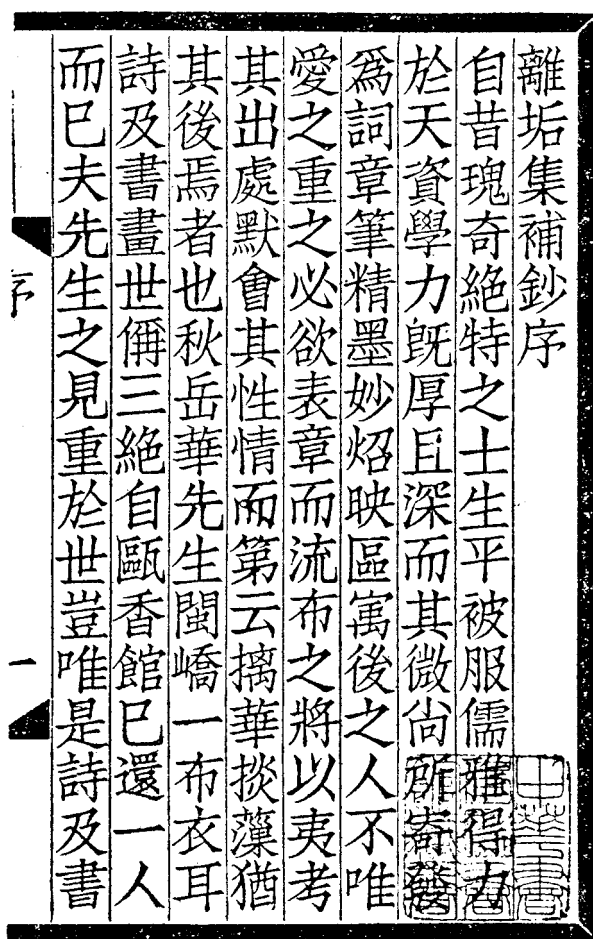 離垢集補鈔序
自昔瑰奇絶特之士生平被服儒雅得力
於天資學力旣厚且深而其微尙所寄發
爲詞章筆精墨妙炤映區寓後之人不唯
愛之重之必欲表章而流布之將以夷考
其出處默會其性情而第云摛華掞藻猶
其後焉者也秋岳華先生閩嶠一布衣耳
詩及書畫世偁三絶自甌香館已還一人
而已夫先生之見重於世豈唯是詩及書
序
一